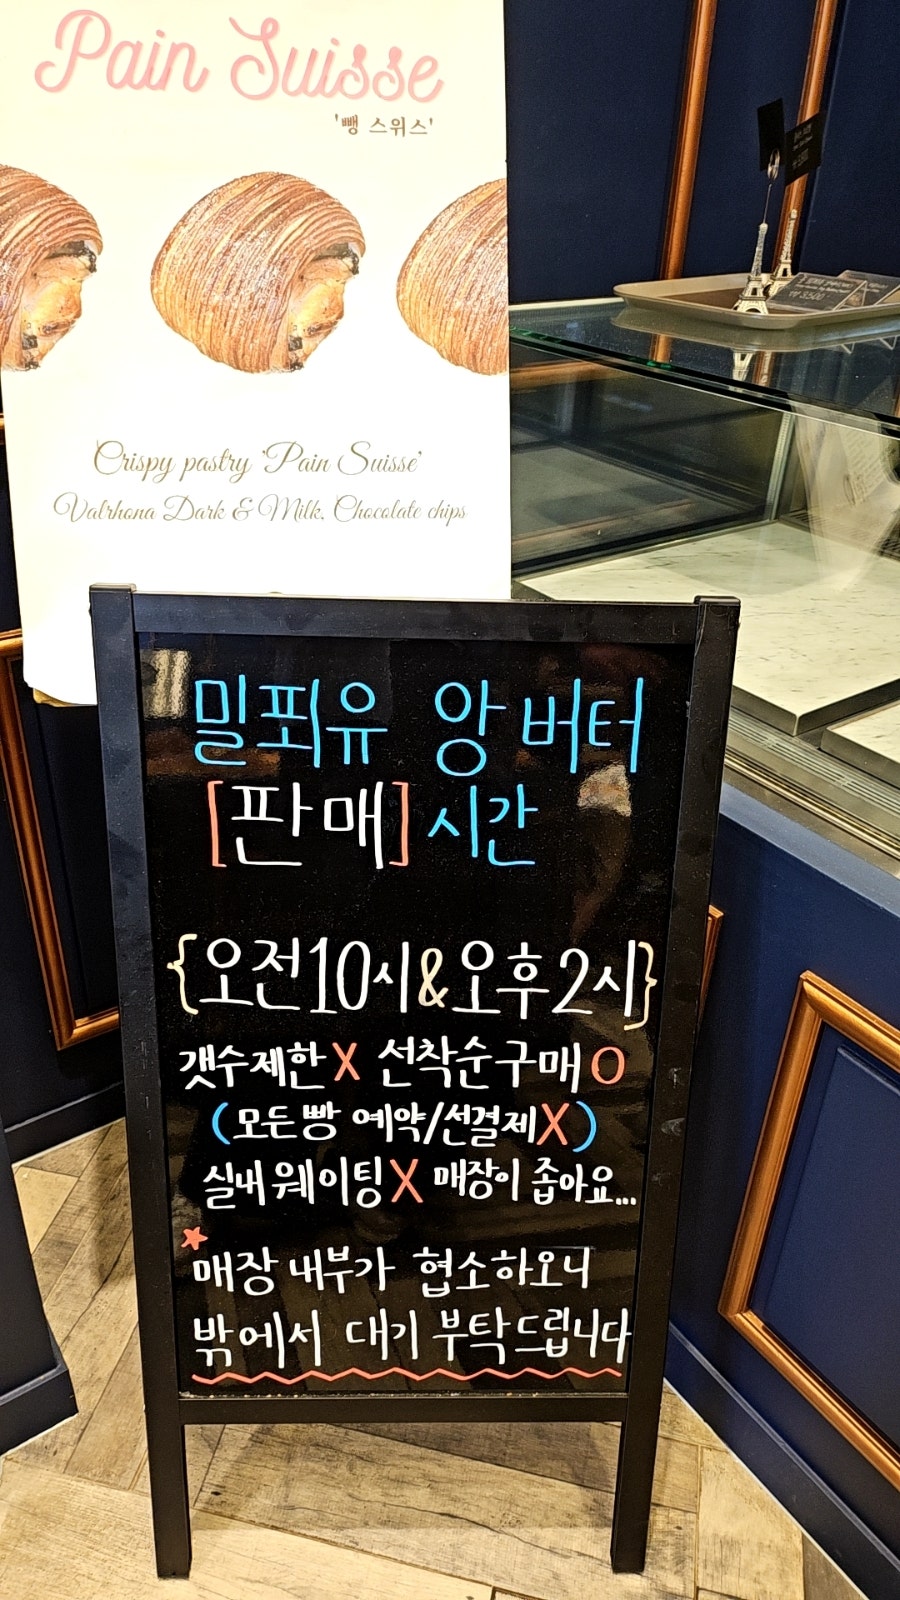 Pain Suisse
'뺑 스위스'
Crispy pastry 'Pain Suisse'
Valrhona Dark & Milk, Chocolate chips
밀푀유 앙버터
[판매] 시간
{오전10시&오후2시}
갯수제한X 선착순구매O
(모든빵 예약/선결제X)
실내웨이팅X 매장이 좁아요...
매장 내부가 협소하오니
밖에서 대기 부탁드립니다